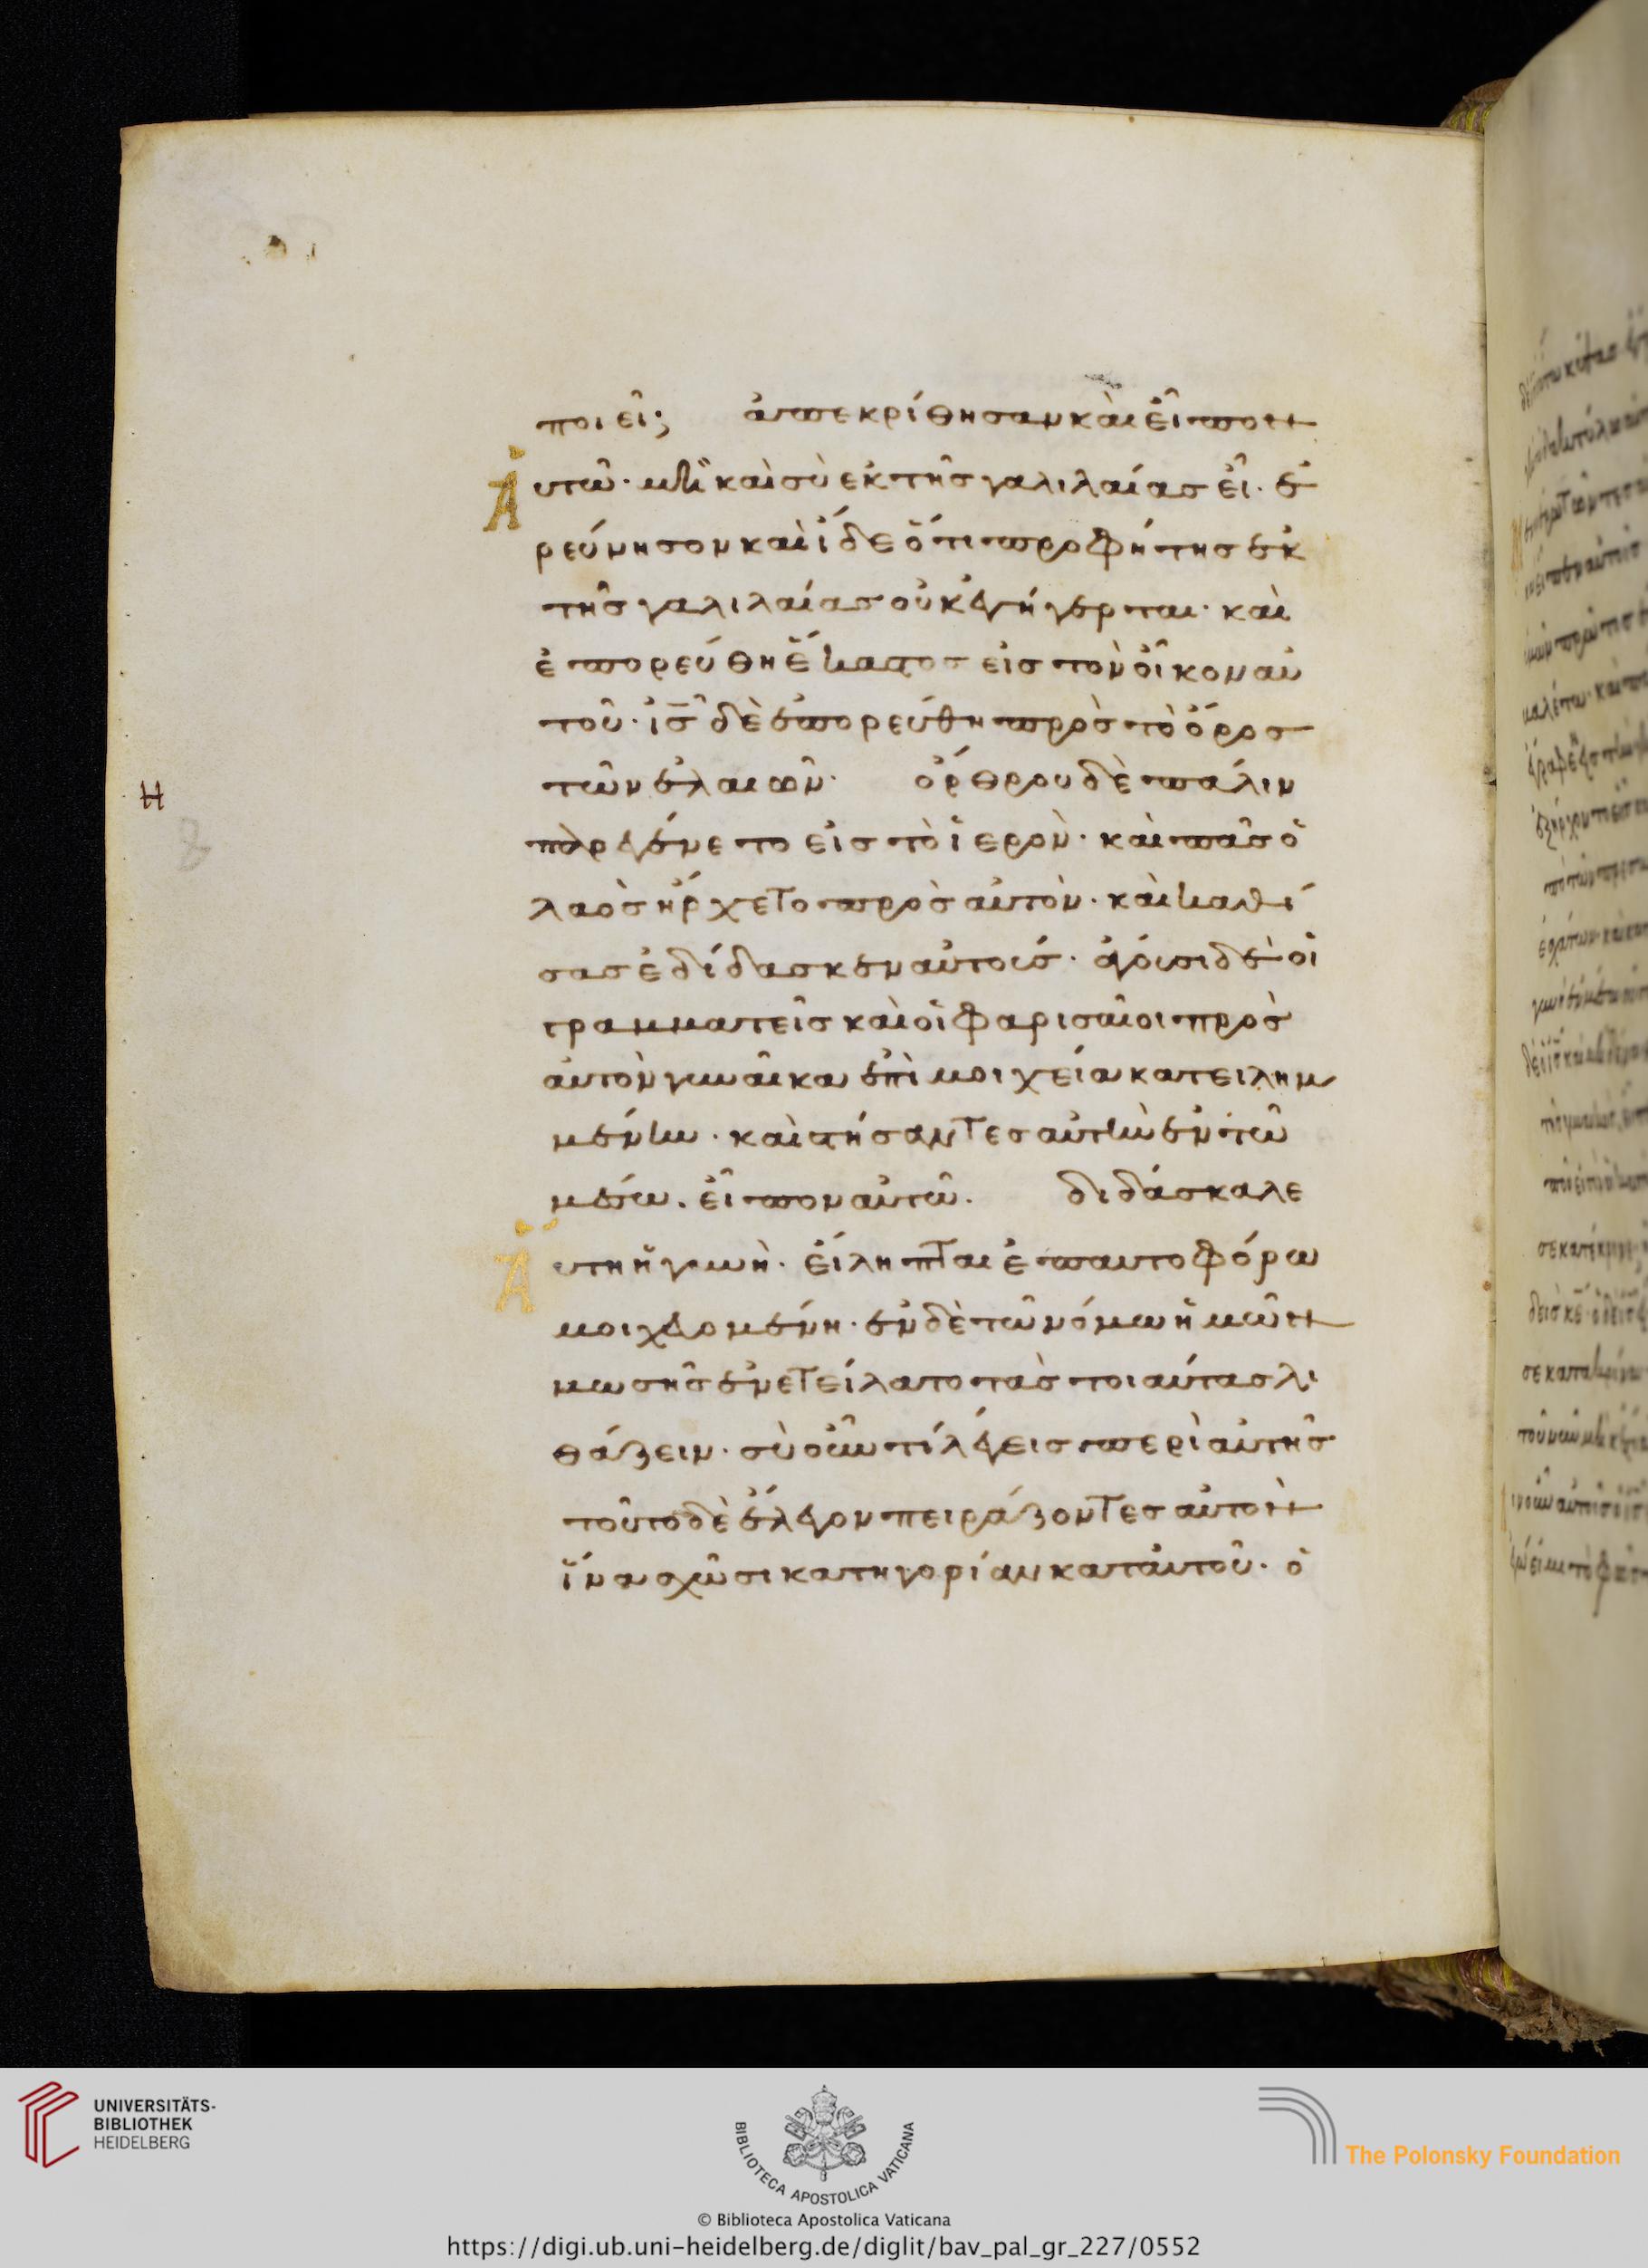 ποιεῖ; ἀπεκρίθησαν καὶ εἶπον
Αὐτῶ· μὴ καὶ σὺ ἐκ τῆς γαλιλαίας εἶ· ἐ
ρεύνησον καὶ ἴδε ὅτι προφήτης ἐκ
τῆς γαλιλαίας οὐκ ἐγήγερται· καὶ
ἐπορεύθη ἕκαστος εἰς τὸν οἶκον αὐ
τοῦ· ἰς̅ δὲ ἐπορεύθη πρὸς τὸ ὄρος
τῶν ἐλαιῶν· ὄρθρου δὲ πάλιν
Η
8
παρεγένετο εἰς τὸ ἱερὸν· καὶ πᾶς ὁ
λαὸς ἤρχετο πρὸς αὐτὸν· καὶ καθί
σας ἐδίδασκεν αὐτούς· ἄγουσι δὲ οἱ
γραμματεῖς καὶ οἱ φαρισαῖοι πρὸς
αὐτὸν γυναῖκα ἐπὶ μοιχεία κατειλημ
μένην· καὶ στήσαντες αὐτὴν ἐν τῶ
μέσω. εἶπον αὐτῶ. διδάσκαλε
Αὕτη ἡ γυνὴ· εἴληπται ἐπαυτοφόρω
μοιχευομένη· ἐν δὲ τῶ νόμω ἡμῶν
μωσῆς ἐνετείλατο τὰς τοιαύτας λι
θάζειν· σὺ οὖν τί λέγεις περὶ αὐτῆς
τοῦτο δὲ ἔλεγον πειράζοντες αὐτὸν
ἵνα σχῶσι κατηγορίαν κατ αὐτοῦ· ὁ
UNIVERSITÄTS-
BIBLIOTHEK
HEIDELBERG
BIBLIOTECA APOSTOLICA VATICANA
The Polonsky Foundation
© Biblioteca Apostolica Vaticana
https://digi.ub.uni-heidelberg.de/diglit/bav_pal_gr_227/0552